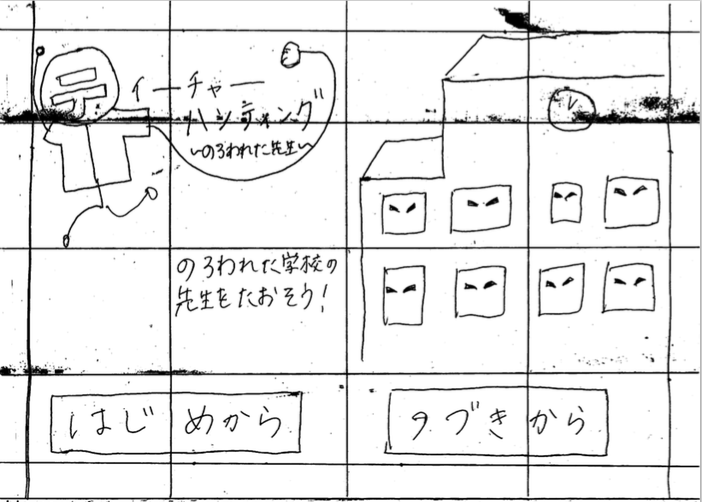 ティーチャー
ハンティング
~のろわれた先生~
のろわれた学校の
先生をたおそう!
はじめから
つづきから